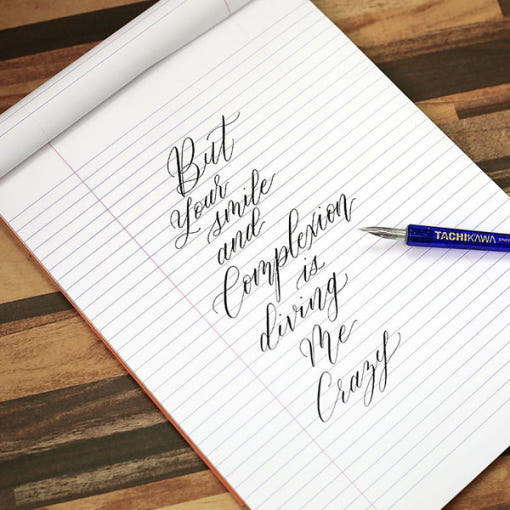 But
Your
smile
and
Complexion
is
diving
Me
Crazy
TACHIKAWA